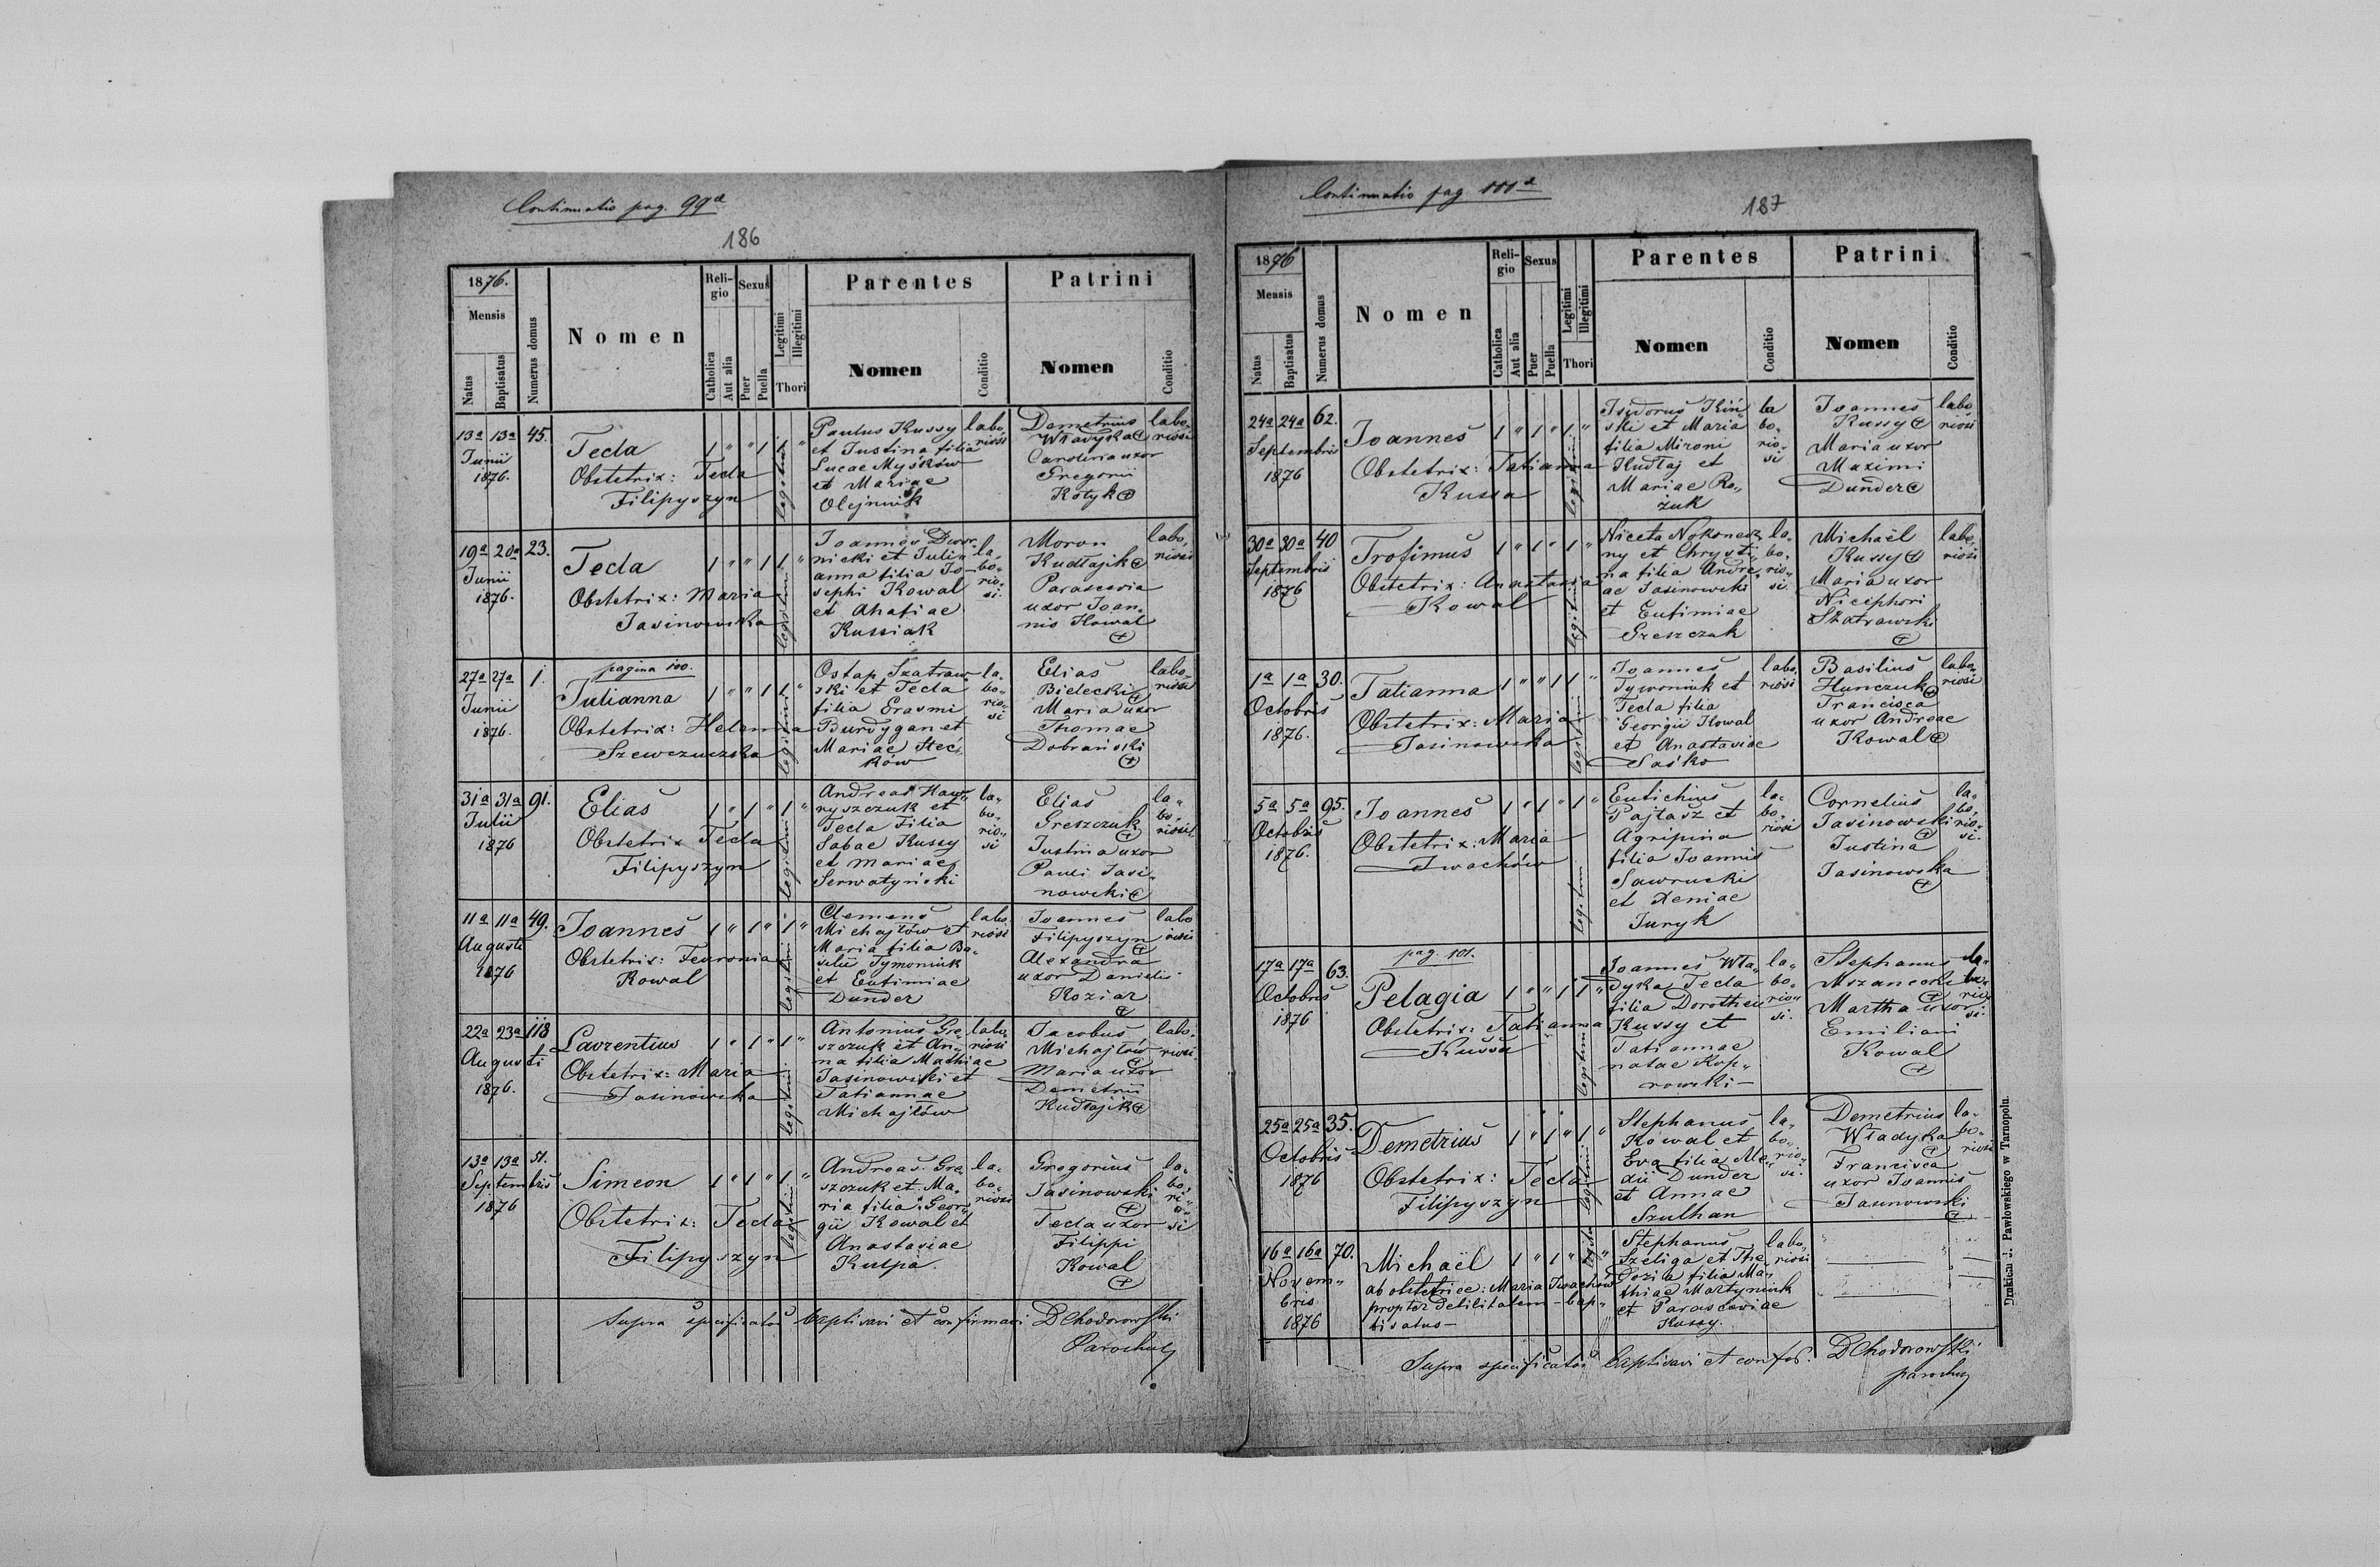 Continuatio pag. 99a
186
1876.
Mensis
Natus
Baptisatus
Numerus domus
Nomen
Religio
Catholica
Aut alia
Sexus
Puer
Puella
Legitimi
Illegitimi
Thori
Parentes
Nomen
Conditio
Patrini
Nomen
Conditio
13a 13a 45.
Junii
1876.
Tecla
Obstetrix: Tecla
Filipyszyn
1 " " 1 1 "
legitimi
Paulus Kussy
et Justina filia
Lucae Myśków
et Mariae
Olejnik
labo-
riosi
Demetrius
Władyka
Carolina uxor
Gregorii
Kotyk
labo-
riosi
19a 20a 23.
Junii
1876.
Tecla
Obstetrix: Maria
Jasinowska
1 " " 1 1 "
Joannes Dwor-
nicki et Juli-
anna filia Jo-
sephi Kowal
et Ahafiae
Kussiak
la-
bo-
rio-
si.
Moron
Kudłajik
Parascevia
uxor Joan-
nis Kowal
labo-
riosi
pagina 100.
27a 27a 1.
Junii
1876.
Julianna
Obstetrix: Helena
Szewczuczka
1 " " 1 1 "
legitimi
Ostap Szatraw-
ski et Tecla
filia Erasmi
Burdygan et
Mariae Stec-
ków
la-
bo-
rio-
si
Elias
Bielecki
Maria uxor
Thomae
Dobrański
labo-
riosi
31a 31a 91.
Julii
1876
Elias
Obstetrix Tecla
Filipyszyn
1 " 1 " 1 "
legitimi
Andreas Haw-
ryszczuk et
Tecla Filia
Sabae Kussy
et Mariae
Serwatyński
la-
bo-
rio-
si
Elias
Greszczuk
Justina uxor
Pauli Jasi-
nowski
la-
bo-
riosi
11a 11a 49.
Augusti
1876
Joannes
Obstetrix: Fevronia
Kowal
1 " 1 " 1 "
legitimi
Clemens
Michajłów et
Maria filia Ba-
silii Tymoniuk
et Eutimiae
Dunder
labo-
riosi
Joannes
Filipyszyn
Alexandra
uxor Danielis
Koziar
labo
riosi
22a 23a 118
Augusti
1876.
Laurentius
Obstetrix: Maria
Jasinowska
1 " 1 " 1 "
legitimi
Antonius Gre-
szczuk et An-
na filia Mathiae
Jasinowski et
Tatiannae
Michajłów
labo-
riosi
Jacobus
Michajłów
Maria uxor
Demetrii
Kudłajik
labo-
riosi
13a 13a 51.
Septembris
1876
Simeon
Obstetrix: Tecla
Filipyszyn
1 " 1 " 1 "
legitimi
Andreas Gre-
szczuk et Ma-
ria filia Geor-
gii Kowal et
Anastasiae
Kulpa
la-
bo-
riosi
Gregorius
Jasinowski
Tecla uxor
Filippi
Kowal
la-
bo-
ri-
o-
si
Supra specificatos baptisavi et confirmavi DChodorowski
Parochus
Continuatio pag 101a
187
1876
Mensis
Natus
Baptisatus
Numerus domus
Nomen
Religio
Catholica
Aut alia
Sexus
Puer
Puella
Legitimi
Illegitimi
Thori
Parentes
Nomen
Conditio
Patrini
Nomen
Conditio
24a 24a 62.
Septembris
1876
Joannes
Obstetrix: Tatianna
Kussa
1 " 1 " 1 "
legitimi
Isydorus Kiń-
ski et Maria
filia Mironi
Kudłaj et
Mariae Ro-
żuk
la
bo-
rio-
si
Joannes
Kussy
Maria uxor
Maximi
Dunder
labo
riosi
30a 30a 40
Septembris
1876
Trofimus
Obstetrix: Anastasia
Kowal
1 " 1 " 1 "
legitimi
Niceta Nokonecz-
ny et Chrysti-
na filia Andre-
ae Jasinowski
et Eutimiae
Greszczuk
la-
bo-
rio-
si.
Michaël
Kussy
Maria uxor
Nicephori
Skatrawski
labo-
riosi
1a 1a 30.
Octobris
1876.
Tatianna
Obstetrix: Maria
Jasinowska
1 " " 1 1 "
legitimi
Joannes
Tymoniuk et
Tecla filia
Georgii Kowal
et Anastasiae
Saśko
labo-
riosi
Basilius
Hunczuk
Francisca
uxor Andreae
Kowal
labo-
riosi
5a 5a 95.
Octobris
1876.
Joannes
Obstetrix: Maria
Iwachów
1 " 1 " 1 "
Eutichius
Pajtasz et
Agripina
filia Joannis
Sawrucki
et Xeniae
Juryk
la-
bo-
riosi
Cornelius
Jasinowski
Justina
Jasinowska
la-
bo-
rio-
si.
pag. 101.
17a 17a 63.
Octobris
1876
Pelagia
Obstetrix: Tatianna
Kussa
1 " " 1 1 "
legitimi
Joannes Wła-
dyka Tecla
filia Dorothei
Kussy et
Tatiannae
natae Kop-
rowski
la-
bo-
rio-
si.
Stephanus
Mszanecki
Martha uxor
Emiliani
Kowal
la-
bo-
rio-
si.
25a 25a 35.
Octobris
1876
Demetrius
Obstetrix: Tecla
Filipyszyn
1 " 1 " 1 "
legitimi
Stephanus
Kowal et
Eva filia Me-
dii Dunder
et Annae
Szulhan
la-
bo-
rio-
si.
Demetrius
Władyka
Francisca
uxor Joannis
Jasinowski
la-
bo-
riosi
16a 16a 70.
Novem-
bris
1876
Michaël
ab obstetrice: Maria Iwachów
propter debilitatem - bap-
tisatus -
1 " 1 " 1 "
Stephanus
Szeliga et The-
dozia filia Ma-
thiae Martyniuk
et Parasceviae
Kussy.
labo-
riosi
Supra specificatos baptisavi et confir. DChodorowski
parochus
Drukiem J. Pawłowskiego w Tarnopolu.